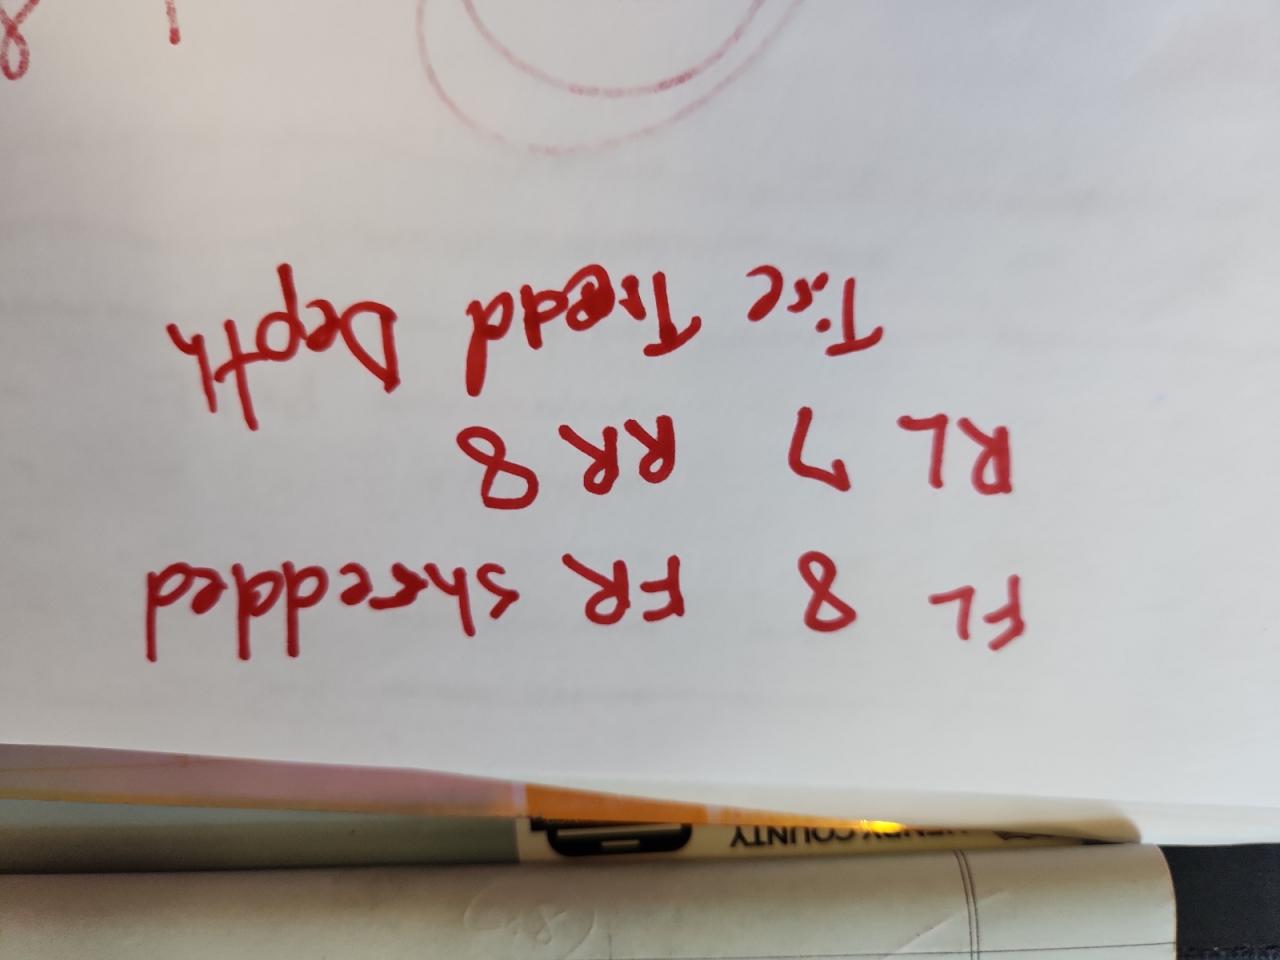 FL 8 FR shredded
RL 7 RR 8
Tire Tread Depth
HENRY COUNTY